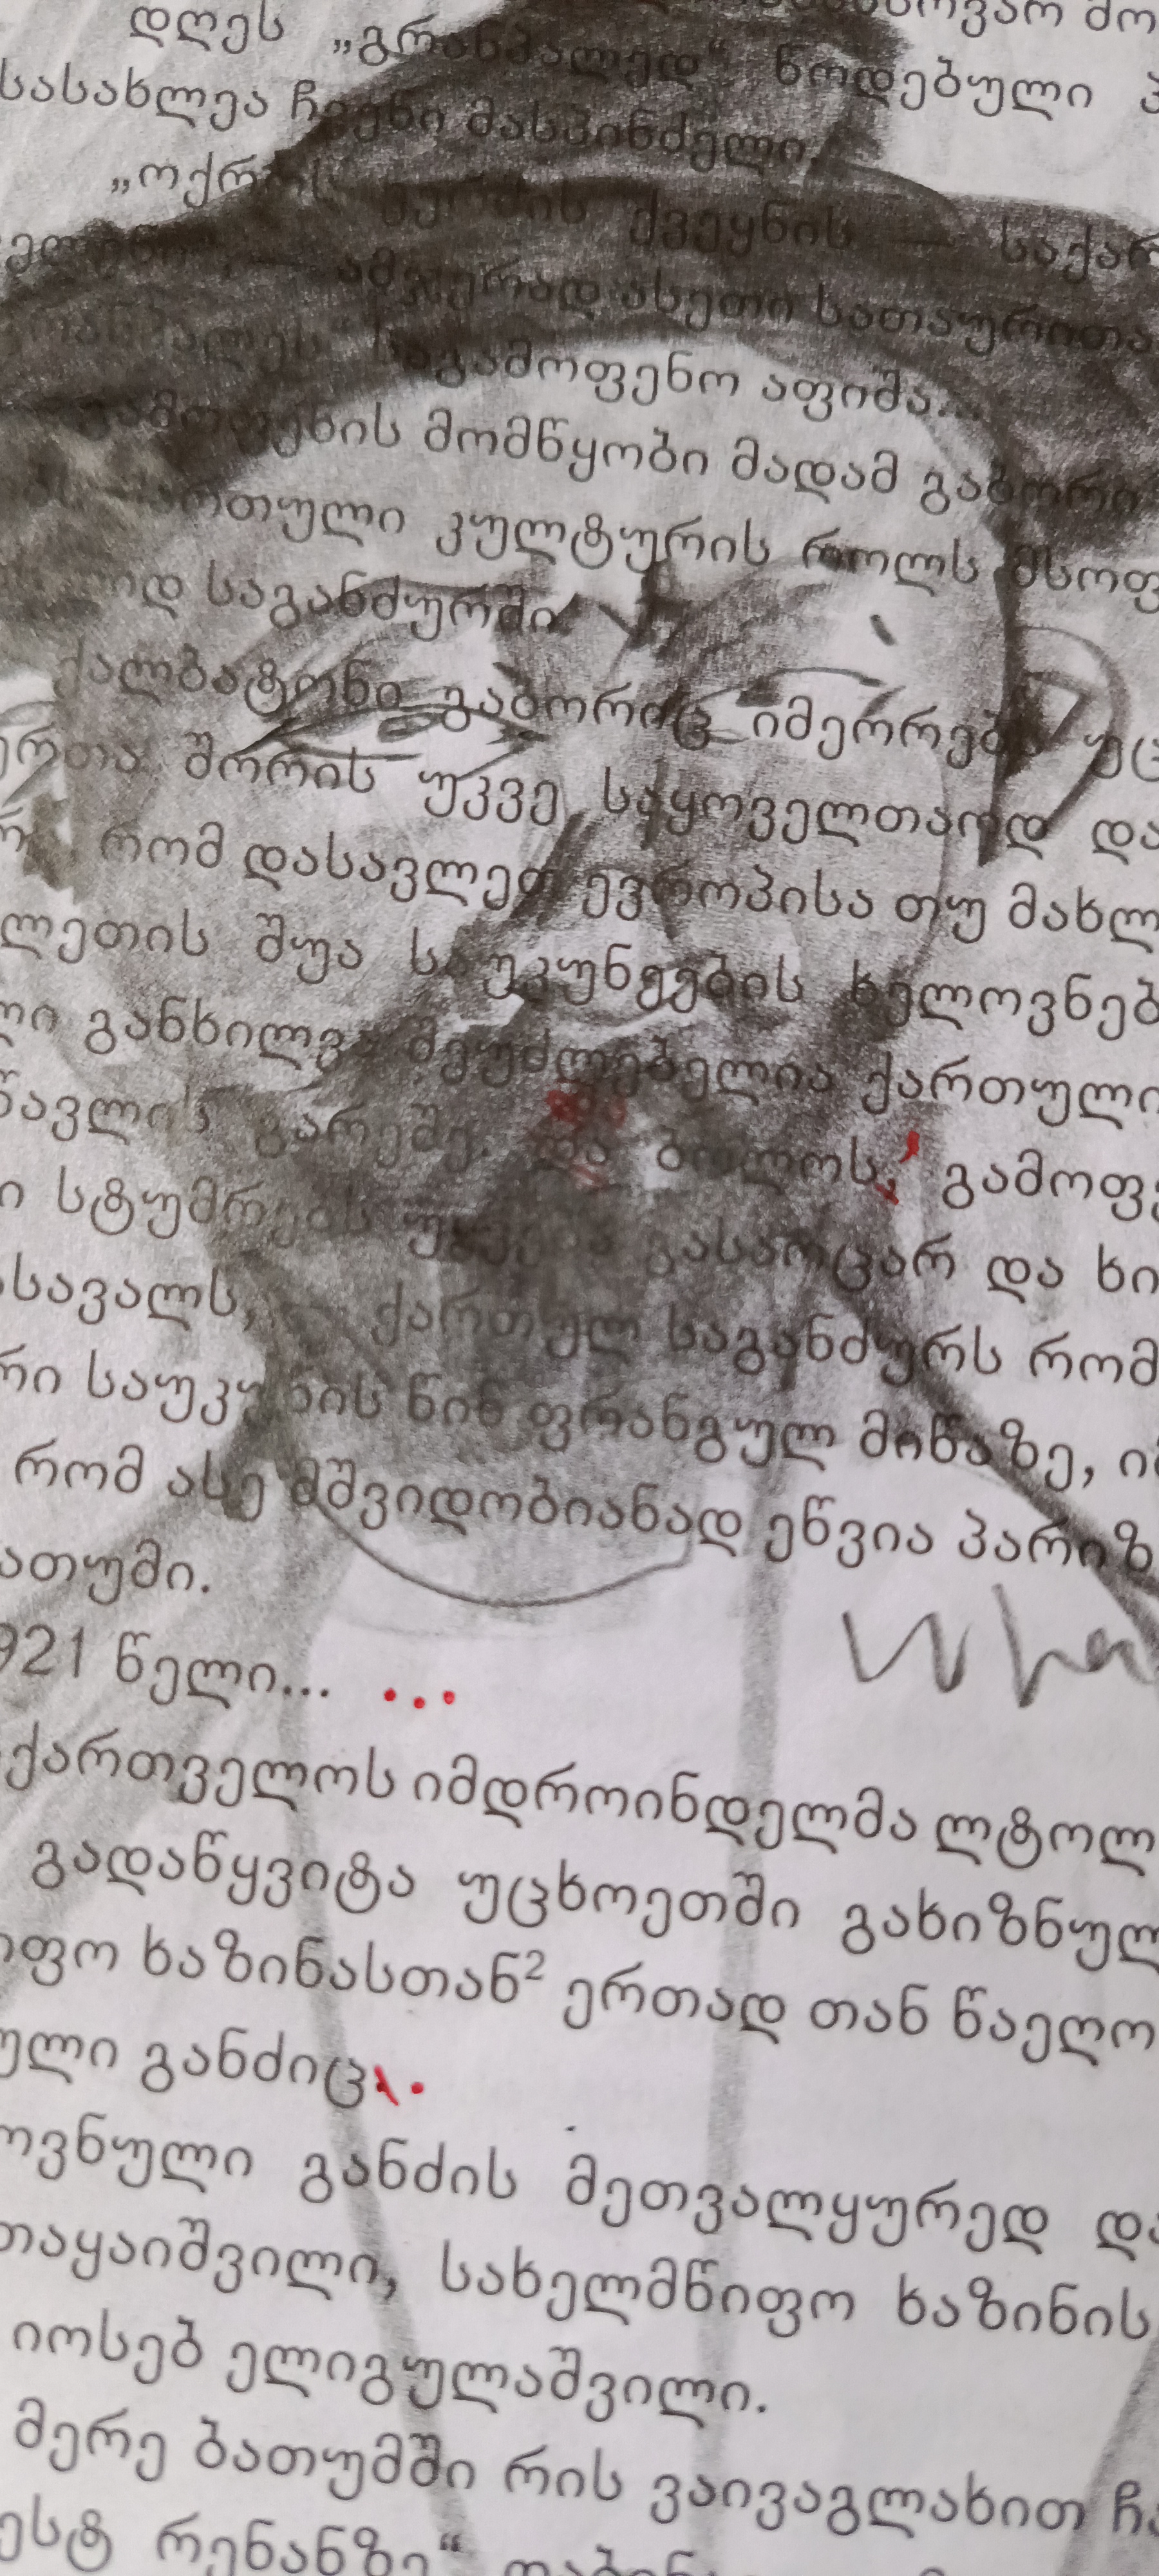 დღეს „გრანპალედ“ წოდებული
სასახლეა ჩვენი მასპინძელი.
„ოქროს ქვეყნის — საქარ
— ამჯერად ასეთი სათაურითა
საგამოფენო აფიშა...
გამოფენის მომწყობი მადამ გაბორი
ქართული კულტურის როლს მსოფ
საგანძურში.
ქალბატონი გაბორიც იმეორებს უც
ერთა შორის უკვე საყოველთაოდ და
რომ დასავლეთ ევროპისა თუ მახლ
ლეთის შუა საუკუნეების ხელოვნებ
ლი განხილვა შეუძლებელია ქართული
წავლის გარეშე. და ბოლოს, გამოფე
ი სტუმრებს უყვება გასაოცარ და ხი
ასავალს, ქართულ საგანძურს რომ
რი საუკუნის წინ ფრანგულ მიწაზე, იმ
რომ ასე მშვიდობიანად ეწვია პარიზ
ათუმი.
921 წელი... ...
ქართველოს იმდროინდელმა ლტოლ
გადაწყვიტა უცხოეთში გახიზნულ
იფო ხაზინასთან² ერთად თან წაეღო
ული განძიც.
ოვნული განძის მეთვალყურედ და
თაყაიშვილი, სახელმწიფო ხაზინის
იოსებ ელიგულაშვილი.
მერე ბათუმში რის ვაივაგლახით ჩა
ესტ რენანზე“